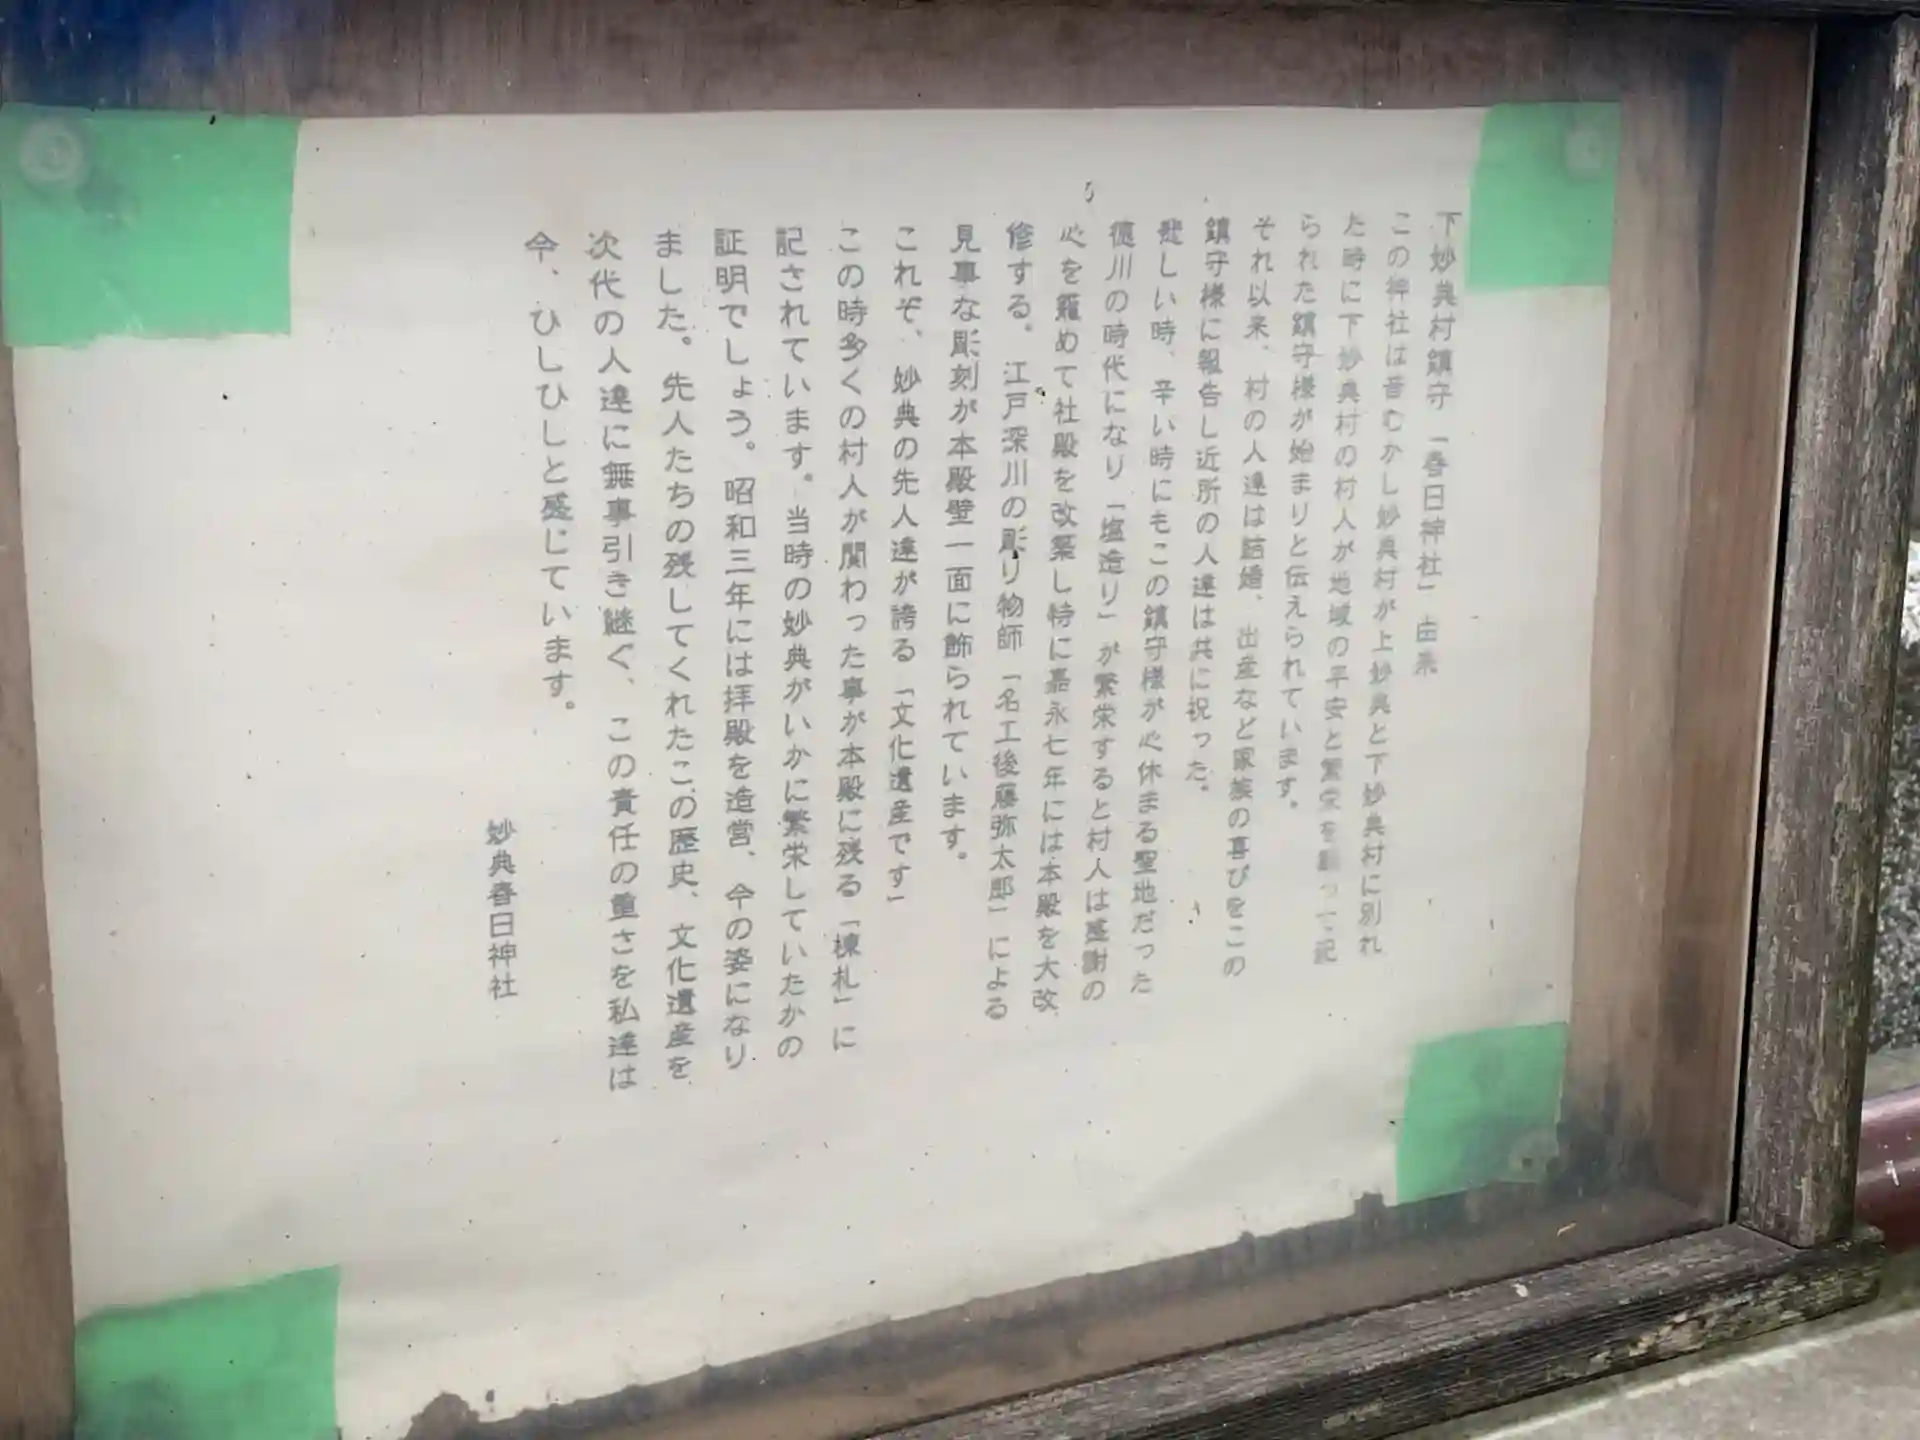 下妙典村鎮守「春日神社」由来
この神社は昔むかし妙典村が上妙典と下妙典村に別れ
た時に下妙典村の村人が地域の平安と繁栄を願って記
られた鎮守様が始まりと伝えられています。
それ以来、村の人達は結婚、出産など家族の喜びをこの
鎮守様に報告し近所の人達は共に祝った。
悲しい時、辛い時にもこの鎮守様が心休まる聖地だった
徳川の時代になり「塩造り」が繁栄すると村人は感謝の
心を籠めて社殿を改築し特に嘉永七年には本殿を大改
修する。江戸深川の彫り物師「名工後藤弥太郎」による
見事な彫刻が本殿壁一面に飾られています。
これぞ、妙典の先人達が誇る「文化遺産です」
この時多くの村人が関わった事が本殿に残る「棟札」に
記されています。当時の妙典がいかに繁栄していたかの
証明でしょう。昭和三年には拝殿を造営、今の姿になり
ました。先人たちの残してくれたこの歴史、文化遺産を
次代の人達に無事引き継ぐ、この責任の重さを私達は
今、ひしひしと感じています。
妙典春日神社